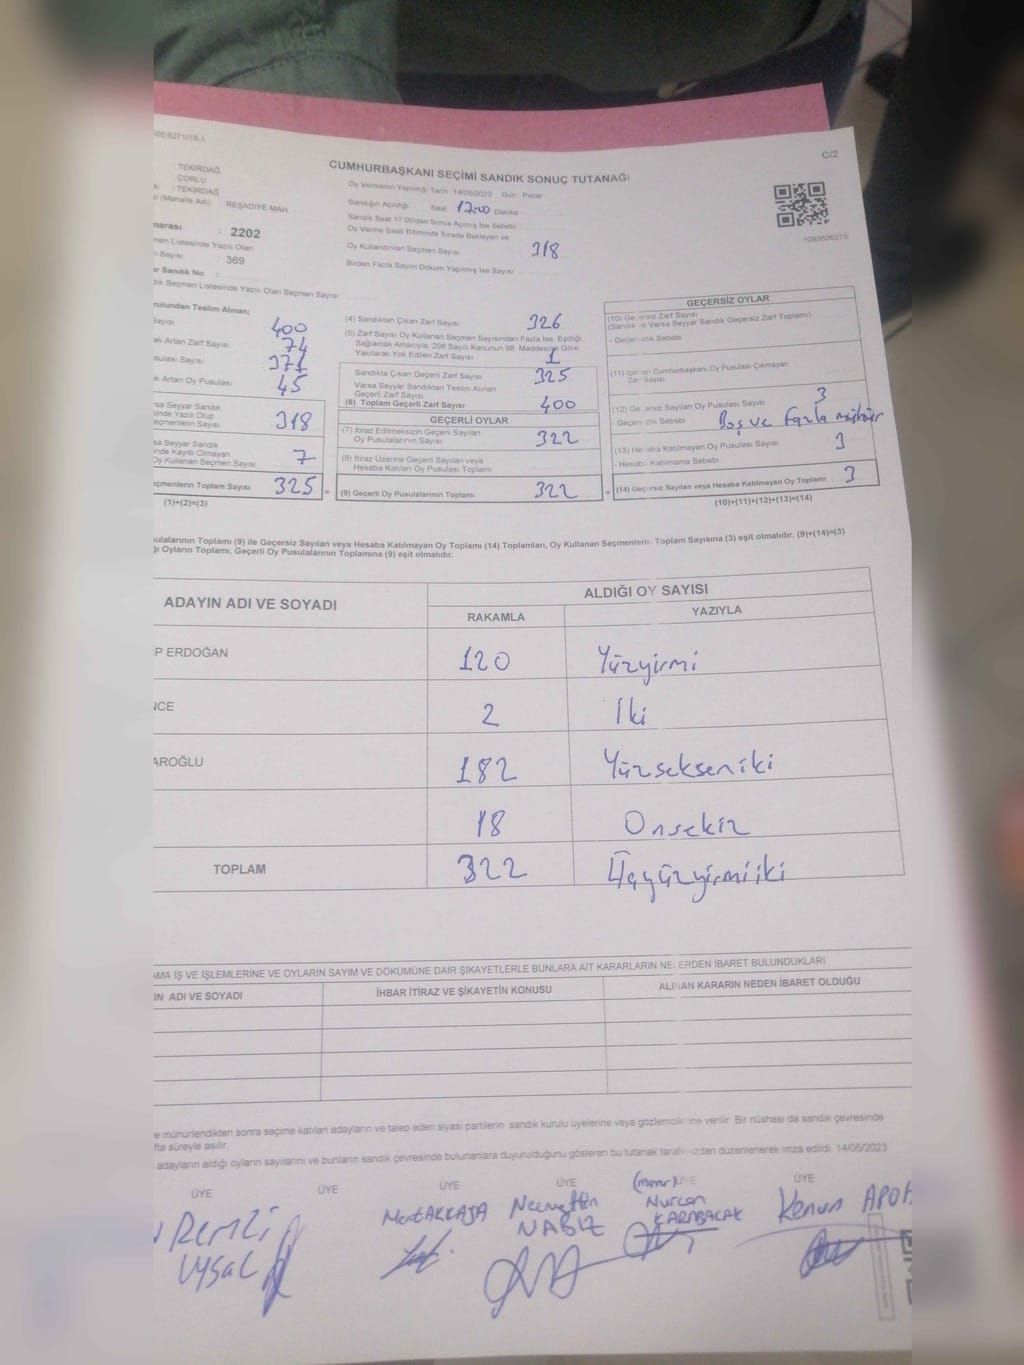 C/2
CUMHURBAŞKANI SEÇİMİ SANDIK SONUÇ TUTANAĞI
TEKİRDAĞ
ÇORLU
: TEKİRDAĞ
(Mahalle Adı) REŞADİYE MAH.
Oy Vermenin Yapıldığı Tarih :14/05/2023 Gün : Pazar
Sandığın Açıldığı Saat 17:00 Dakika
Sandık Saat 17:00'den Sonra Açılmış İse Sebebi
Oy Verme Saati Bitiminde Sırada Bekleyen ve
Oy Kullandırılan Seçmen Sayısı 318
Birden Fazla Sayım Döküm Yapılmış İse Sayısı
1093606275
: 2202
men Listesinde Yazılı Olan
Sayısı : 369
ar Sandık No :
dık Seçmen Listesinde Yazılı Olan Seçmen Sayısı
rulundan Teslim Alınan;
Sayısı 400
ak Artan Zarf Sayısı 74
usulası Sayısı 371
k Artan Oy Pusulası 45
rsa Seyyar Sandık
sinde Yazılı Olup
eçmenlerin Sayısı 318
sa Seyyar Sandık
nde Kayıtlı Olmayan
Oy Kullanan Seçmen Sayısı 7
eçmenlerin Toplam Sayısı 325
(1)+(2)=(3)
(4) Sandıktan Çıkan Zarf Sayısı 326
(5) Zarf Sayısı Oy Kullanan Seçmen Sayısından Fazla İse, Eşitliği
Sağlamak Amacıyla, 298 Sayılı Kanunun 98. Maddesine Göre
Yakılarak Yok Edilen Zarf Sayısı 1
Sandıkta Çıkan Geçerli Zarf Sayısı 325
Varsa Seyyar Sandıktan Teslim Alınan
Geçerli Zarf Sayısı
(6) Toplam Geçerli Zarf Sayısı 400
GEÇERLİ OYLAR
(7) İtiraz Edilmeksizin Geçerli Sayılan
Oy Pusulalarının Sayısı 322
(8) İtiraz Üzerine Geçerli Sayılan veya
Hesaba Katılan Oy Pusulası Toplamı
(9) Geçerli Oy Pusulalarının Toplamı 322
GEÇERSİZ OYLAR
(10) Geçersiz Zarf Sayısı
(Sandık ve Varsa Seyyar Sandık Geçersiz Zarf Toplamı)
- Geçersizlik Sebebi
(11) İçinden Cumhurbaşkanı Oy Pusulası Çıkmayan
Zarf Sayısı
(12) Geçersiz Sayılan Oy Pusulası Sayısı 3
- Geçersizlik Sebebi Boş ve fazla mühür
(13) Hesaba Katılmayan Oy Pusulası Sayısı 3
- Hesaba Katılmama Sebebi
(14) Geçersiz Sayılan veya Hesaba Katılmayan Oy Toplamı 3
(10)+(11)+(12)+(13)=(14)
usulalarının Toplamı (9) ile Geçersiz Sayılan veya Hesaba Katılmayan Oy Toplamı (14) Toplamları, Oy Kullanan Seçmenlerin Toplam Sayısına (3) eşit olmalıdır. (9)+(14)=(3)
ğı Oyların Toplamı, Geçerli Oy Pusulalarının Toplamına (9) eşit olmalıdır.
ADAYIN ADI VE SOYADI ALDIĞI OY SAYISI
RAKAMLA YAZIYLA
P ERDOĞAN 120 Yüzyirmi
NCE 2 İki
AROĞLU 182 Yüzsekseniki
18 Onsekiz
TOPLAM 322 Üçyüzyirmiiki
AMA İŞ VE İŞLEMLERİNE VE OYLARIN SAYIM VE DÖKÜMÜNE DAİR ŞİKAYETLERLE BUNLARA AİT KARARLARIN NELERDEN İBARET BULUNDUKLARI
IN ADI VE SOYADI İHBAR İTİRAZ VE ŞİKAYETİN KONUSU ALINAN KARARIN NEDEN İBARET OLDUĞU
e mühürlendikten sonra seçime katılan adayların ve talep eden siyasi partilerin sandık kurulu üyelerine veya gözlemcilerine verilir. Bir nüshası da sandık çevresinde
fta süreyle asılır.
adayların aldığı oyların sayılarını ve bunların sandık çevresinde bulunanlara duyurulduğunu gösteren bu tutanak tarafımızdan düzenlenerek imza edildi. 14/05/2023
ÜYE ÜYE ÜYE ÜYE ÜYE ÜYE
Remzi Uysal
Mert AKKAYA
Necmettin NABIZ
(memur) Nurcan KARABACAK
Kenan